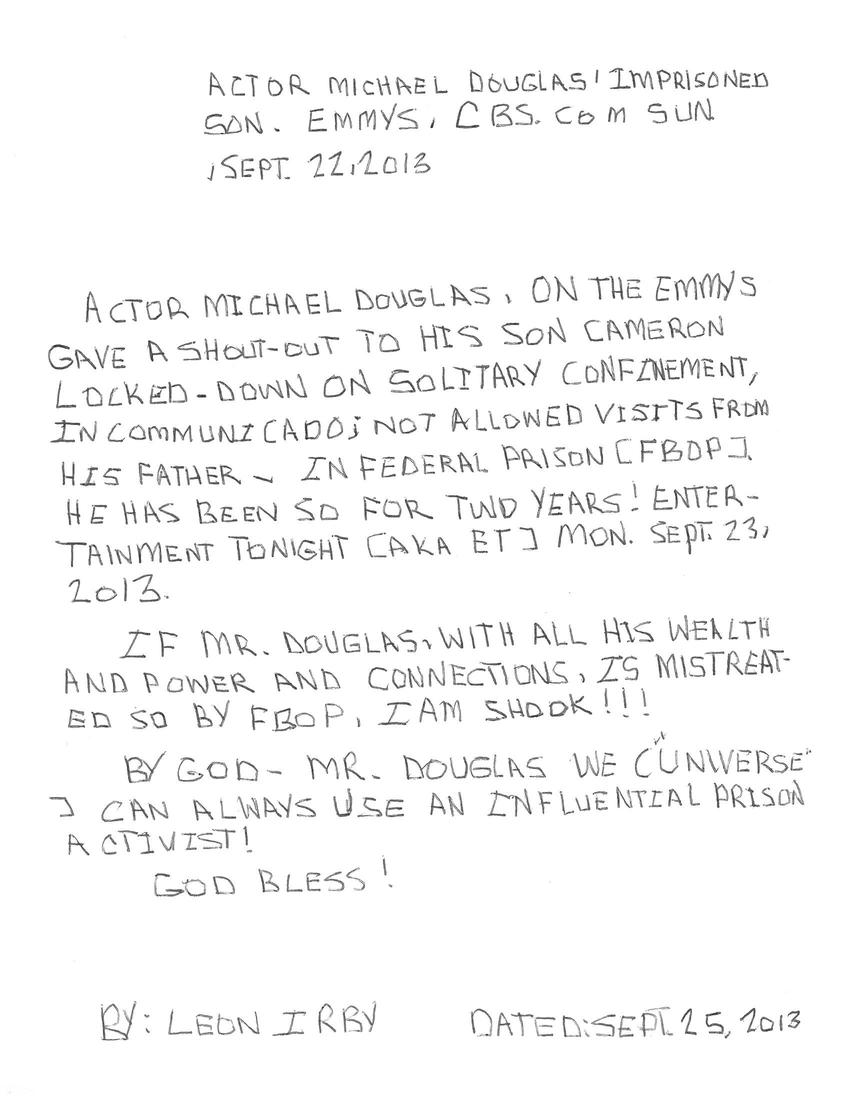 ACTOR MICHAEL DOUGLAS' IMPRISONED
SON. EMMYS, CBS.COM SUN
,SEPT. 22,2013
ACTOR MICHAEL DOUGLAS, ON THE EMMYS
GAVE A SHOUT-OUT TO HIS SON CAMERON
LOCKED-DOWN ON SOLITARY CONFINEMENT,
INCOMMUNICADO; NOT ALLOWED VISITS FROM
HIS FATHER ~ IN FEDERAL PRISON [FBOP].
HE HAS BEEN SO FOR TWO YEARS! ENTER-
TAINMENT TONIGHT [AKA ET] MON. SEPT. 23,
2013.
IF MR. DOUGLAS, WITH ALL HIS WEALTH
AND POWER AND CONNECTIONS, IS MISTREAT-
ED SO BY FBOP, I AM SHOOK!!!
BY GOD- MR. DOUGLAS WE ["UNIVERSE"
] CAN ALWAYS USE AN INFLUENTIAL PRISON
ACTIVIST!
GOD BLESS!
BY: LEON IRBY DATED: SEPT. 25, 2013